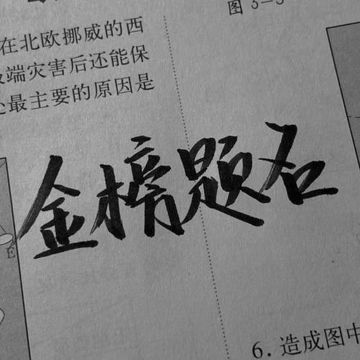 图 3-5
在北欧挪威的西
端灾害后还能保
最主要的原因是
金榜题名
6. 造成图中